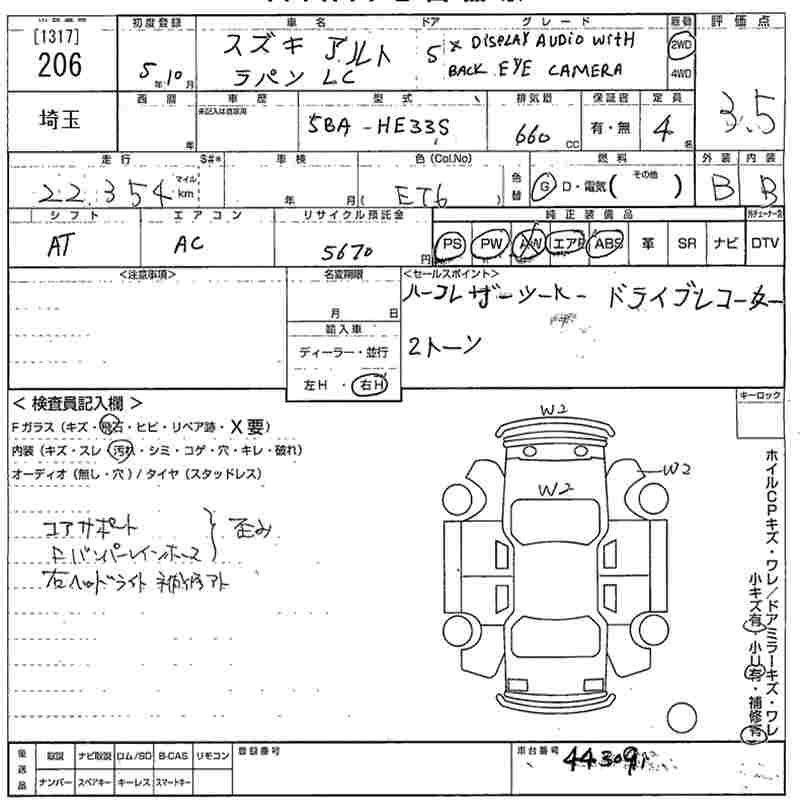 [1317]
206
埼玉
初度登録
5年 10月
車名
スズキ アルト
ラパン LC
ドア
5
グレード
X DISPLAY AUDIO WITH
BACK EYE CAMERA
駆動
2WD
4WD
評価点
3.5
西暦
年
車歴
未記入は自家用
型式
5BA-HE33S
排気量
660 CC
保証書
有・無
定員
4名
走行
22,354
マイル
km
S#*
車検
年 月
色(Col.No)
( ET6 )
色替
燃料
G D・電気( その他 )
外装
B
内装
B
シフト
AT
エアコン
AC
リサイクル預託金
5670円
純正装備品
PS PW AW エアB ABS 革 SR ナビ
DTV
<注意事項>
名変期限
月 日
輸入車
ディーラー・並行
左H・右H
<セールスポイント>
ハーフレザーシート ドライブレコーダー
2トーン
＜検査員記入欄＞
Fガラス(キズ・飛石・ヒビ・リペア跡・X要)
内装(キズ・スレ・汚れ・シミ・コゲ・穴・キレ・破れ)
オーディオ(無し・穴)/タイヤ(スタッドレス)
コアサポート
Fバンパーレインホース } 歪み
右ヘッドライト 補修アト
キーロック
W2
W2
W2
ホイルCPキズ・ワレ/ドアミラーキズ・ワレ
小キズ有・小U有・補修有
後送品
取説 ナビ取説 ロム/SD B-CAS リモコン
ナンバー スペアキー キーレス スマートキー
登録番号
車台番号
443091